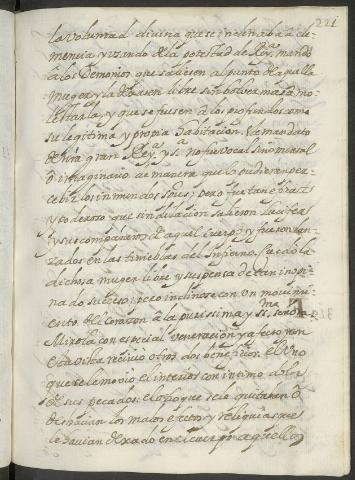 221
la voluntad divina que se inclinaba a cle-
mencia y usando de la potestad de Reyna, mandó
a los Demonios que saliesen al punto de aquella
muger y la dexasen libre sin bolver mas a mo-
lestarla, y que se fuesen a los profundos como
su legitima y propia habitacion. El mandato
de nra gran Reyna y Sa no fue vocal sino mental
ô imaginario de manera que lo pudieron per-
cebir los inmundos spus; pero fue tan eficaz
y poderoso que sin dilacion salieron Lucifer
y sus compañeros de aquel cuerpo y fueron lan-
zados en las tinieblas del Infierno. Quedó la
dichosa muger libre y suspensa de tan inopi-
nado suceso; pero inclinose con un movimi-
ento del corazon a la purissima y Sma señora
Mirola con especial veneracion y afecto y con
esta vista recivio otros dos beneficios. el uno
que se le movio el interior con intimo dolor
de sus pecados. el otro que se le quitaron ô
deshacian los malos efectos y reliquias que
le havian dexado en el cuerpo aquellos